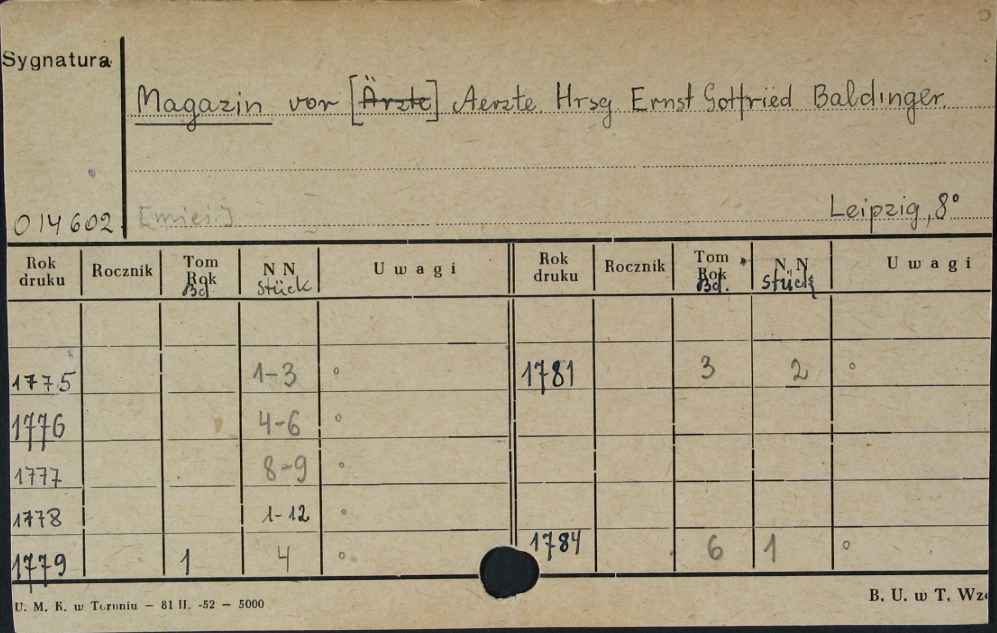 Sygnatura
Magazin vor [Ärzte] Aerzte. Hrsg. Ernst Gottfried Baldinger.
014602 [mies.] Leipzig, 8°
Rok druku Rocznik Tom Rok Bd. NN Stück Uwagi Rok druku Rocznik Tom Rok Bd. NN Stück Uwagi
1775 1-3 ° 1781 3 2 °
1776 4-6 °
1777 8-9 °
1778 1-12 °
1779 1 4 ° 1784 6 1 °
U. M. K. w Toruniu — 81 II. -52 — 5000 B. U. w T. Wzó